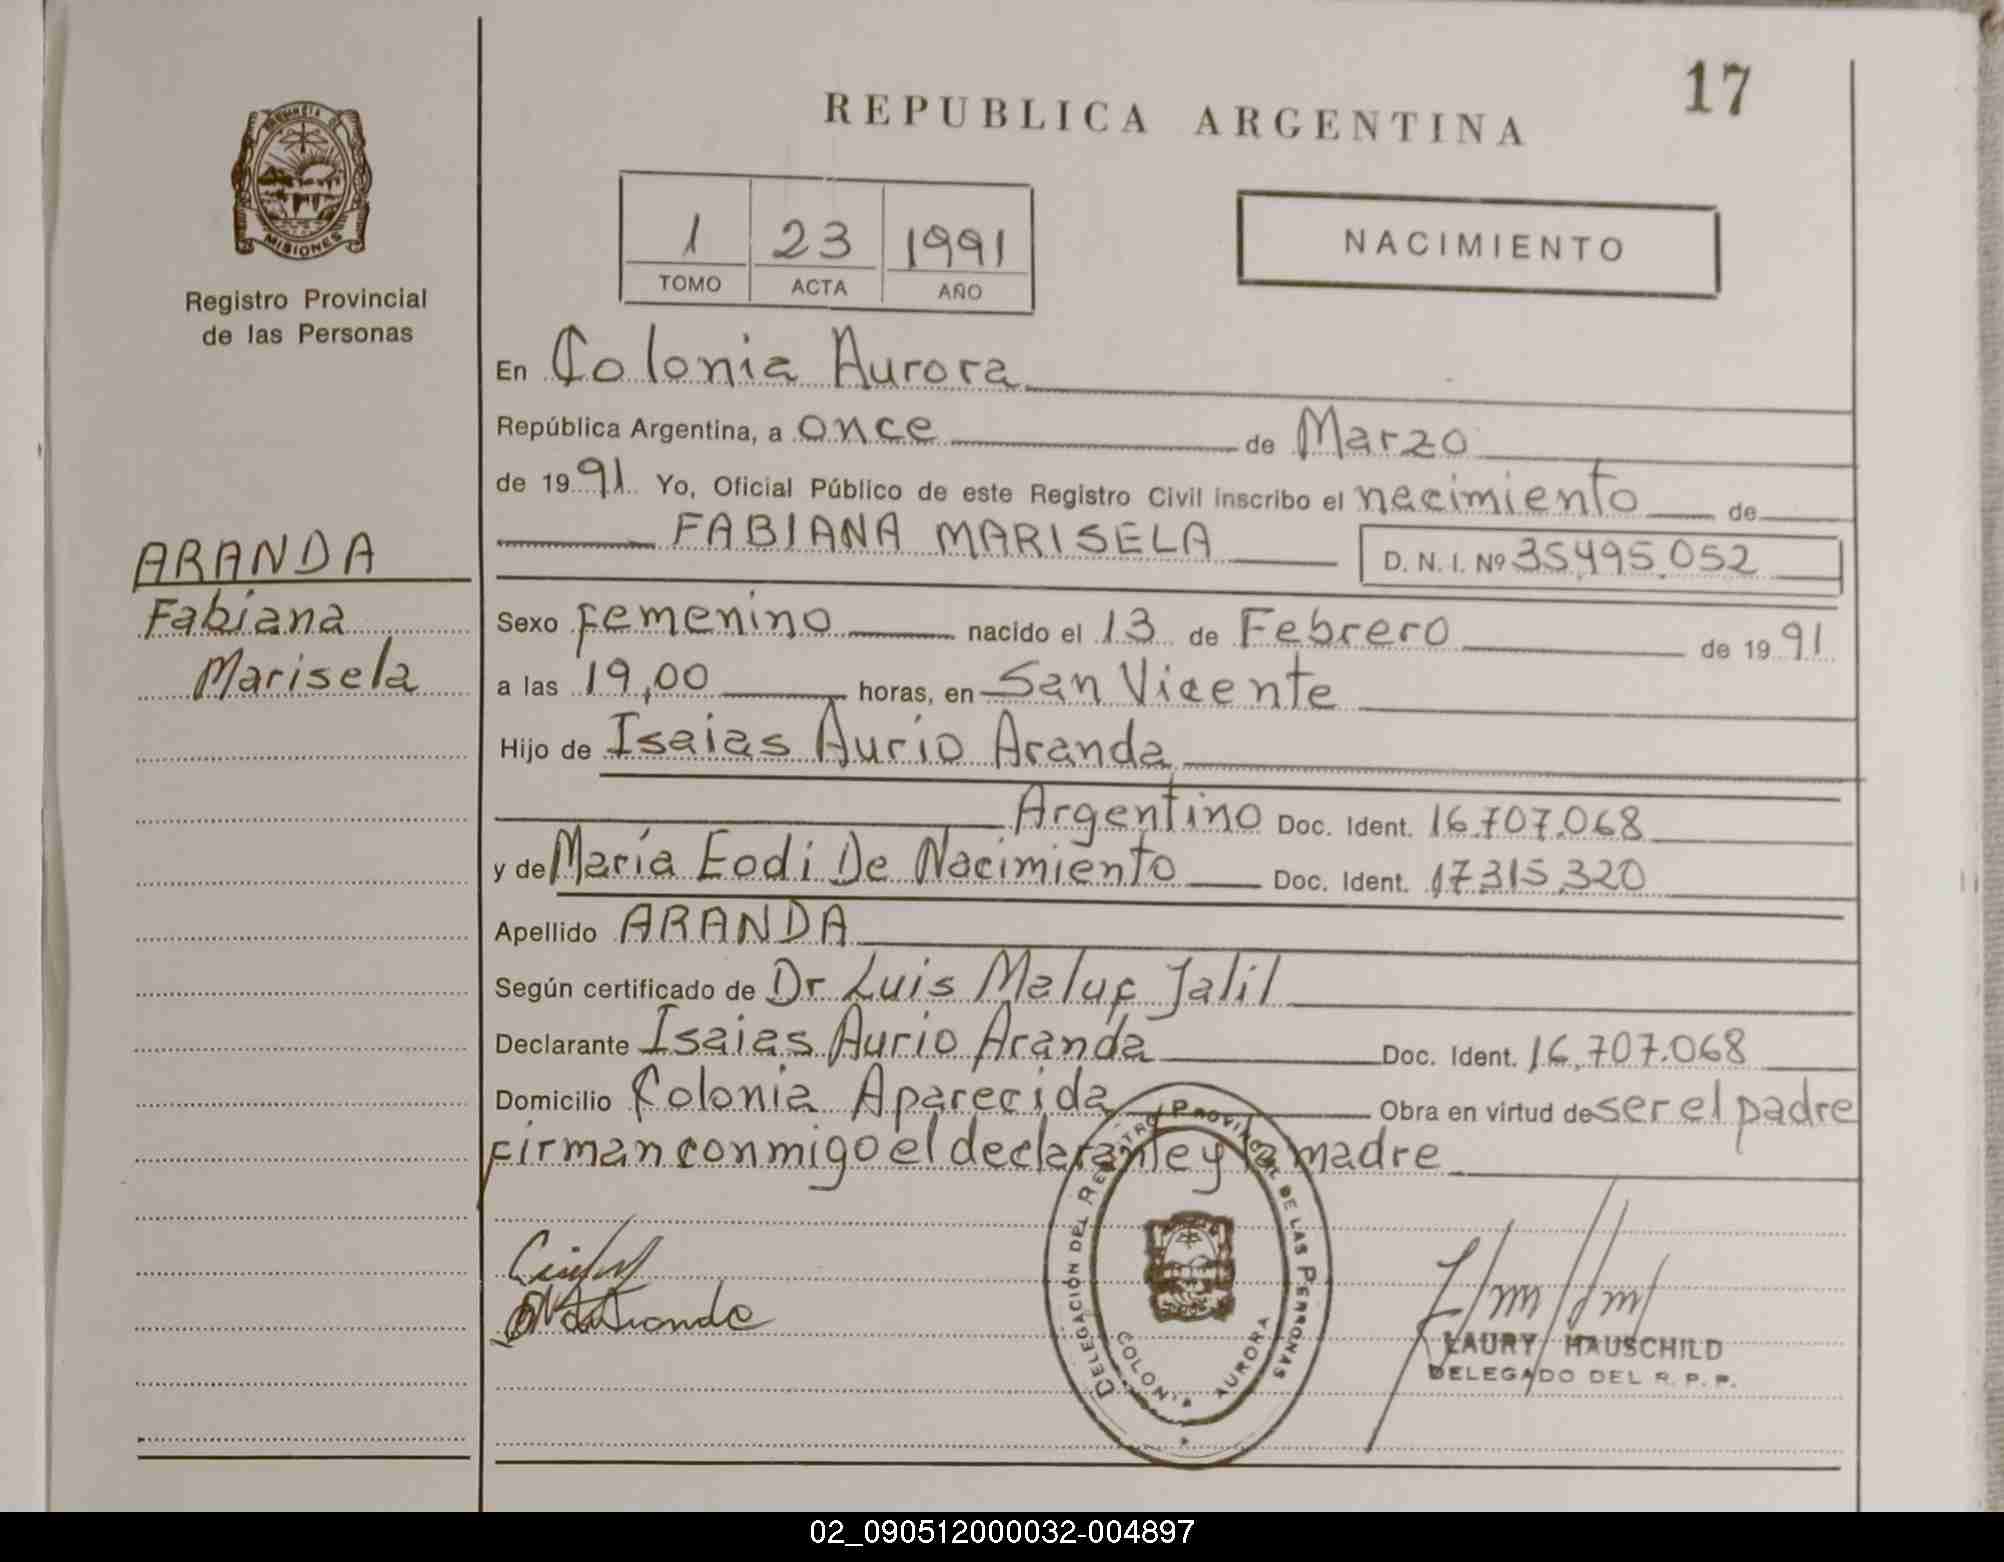 17
REPUBLICA ARGENTINA
PROVINCIA DE
MISIONES
Registro Provincial
de las Personas
1 23 1991
TOMO ACTA AÑO
NACIMIENTO
En Colonia Aurora
República Argentina, a once de Marzo
de 1991 Yo, Oficial Público de este Registro Civil inscribo el nacimiento de
FABIANA MARISELA D. N. I. Nº 35.495.052
ARANDA
Fabiana
Marisela
Sexo Femenino nacido el 13 de Febrero de 1991
a las 19,00 horas, en San Vicente
Hijo de Isaias Aurio Aranda
Argentino Doc. Ident. 16.707.068
y de María Eodi De Nacimiento Doc. Ident. 17.315.320
Apellido ARANDA
Según certificado de Dr Luis Maluf Jalil
Declarante Isaias Aurio Aranda Doc. Ident. 16.707.068
Domicilio Colonia Aparecida Obra en virtud de ser el padre
Firman conmigo el declarante y la madre
DELEGACIÓN DEL REGISTRO PROVINCIAL DE LAS PERSONAS
COLONIA AURORA
LAURY HAUSCHILD
DELEGADO DEL R. P. P.
02_090512000032-004897